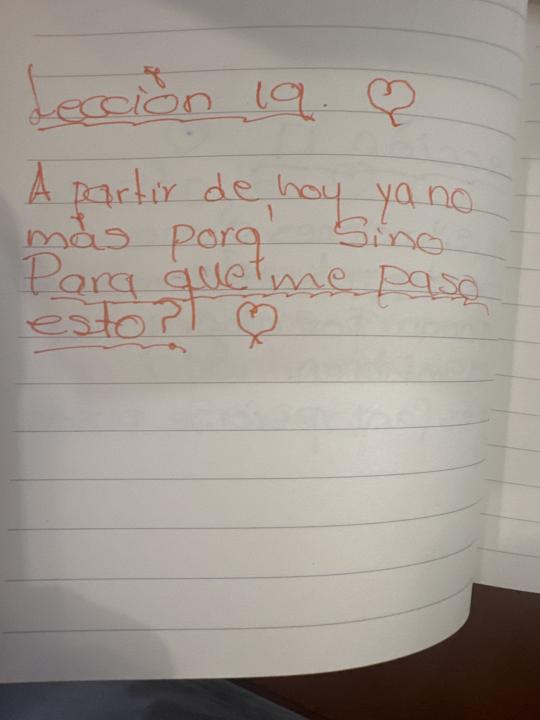 Lección 19. ♡
A partir de hoy ya no
más porq' Sino
Para que me paso
esto? ♡